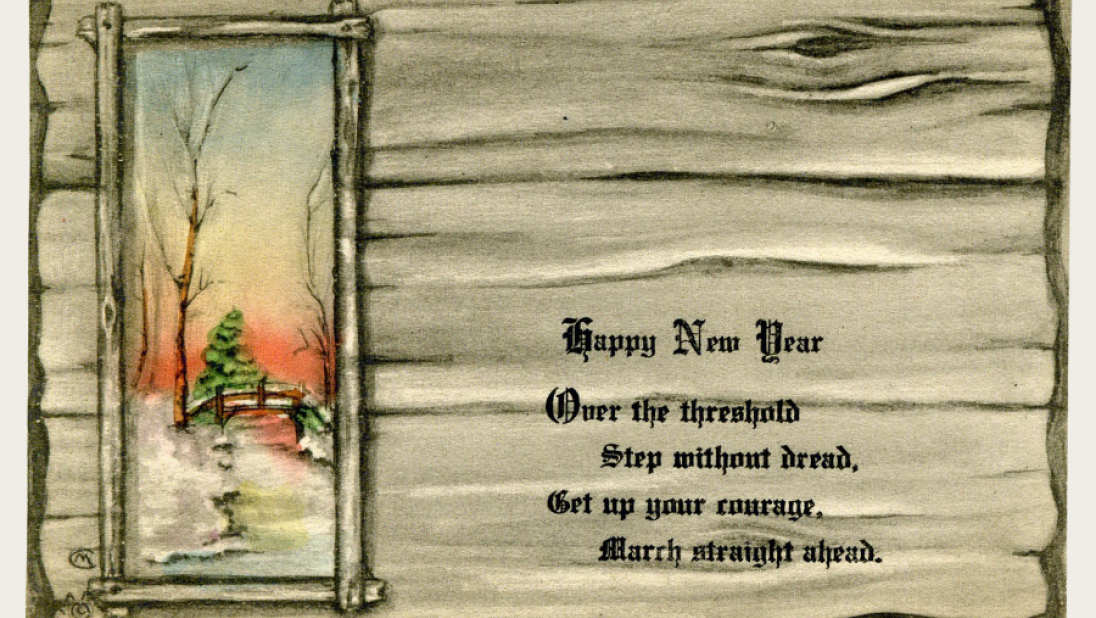 Happy New Year
Over the threshold
Step without dread,
Get up your courage,
March straight ahead.